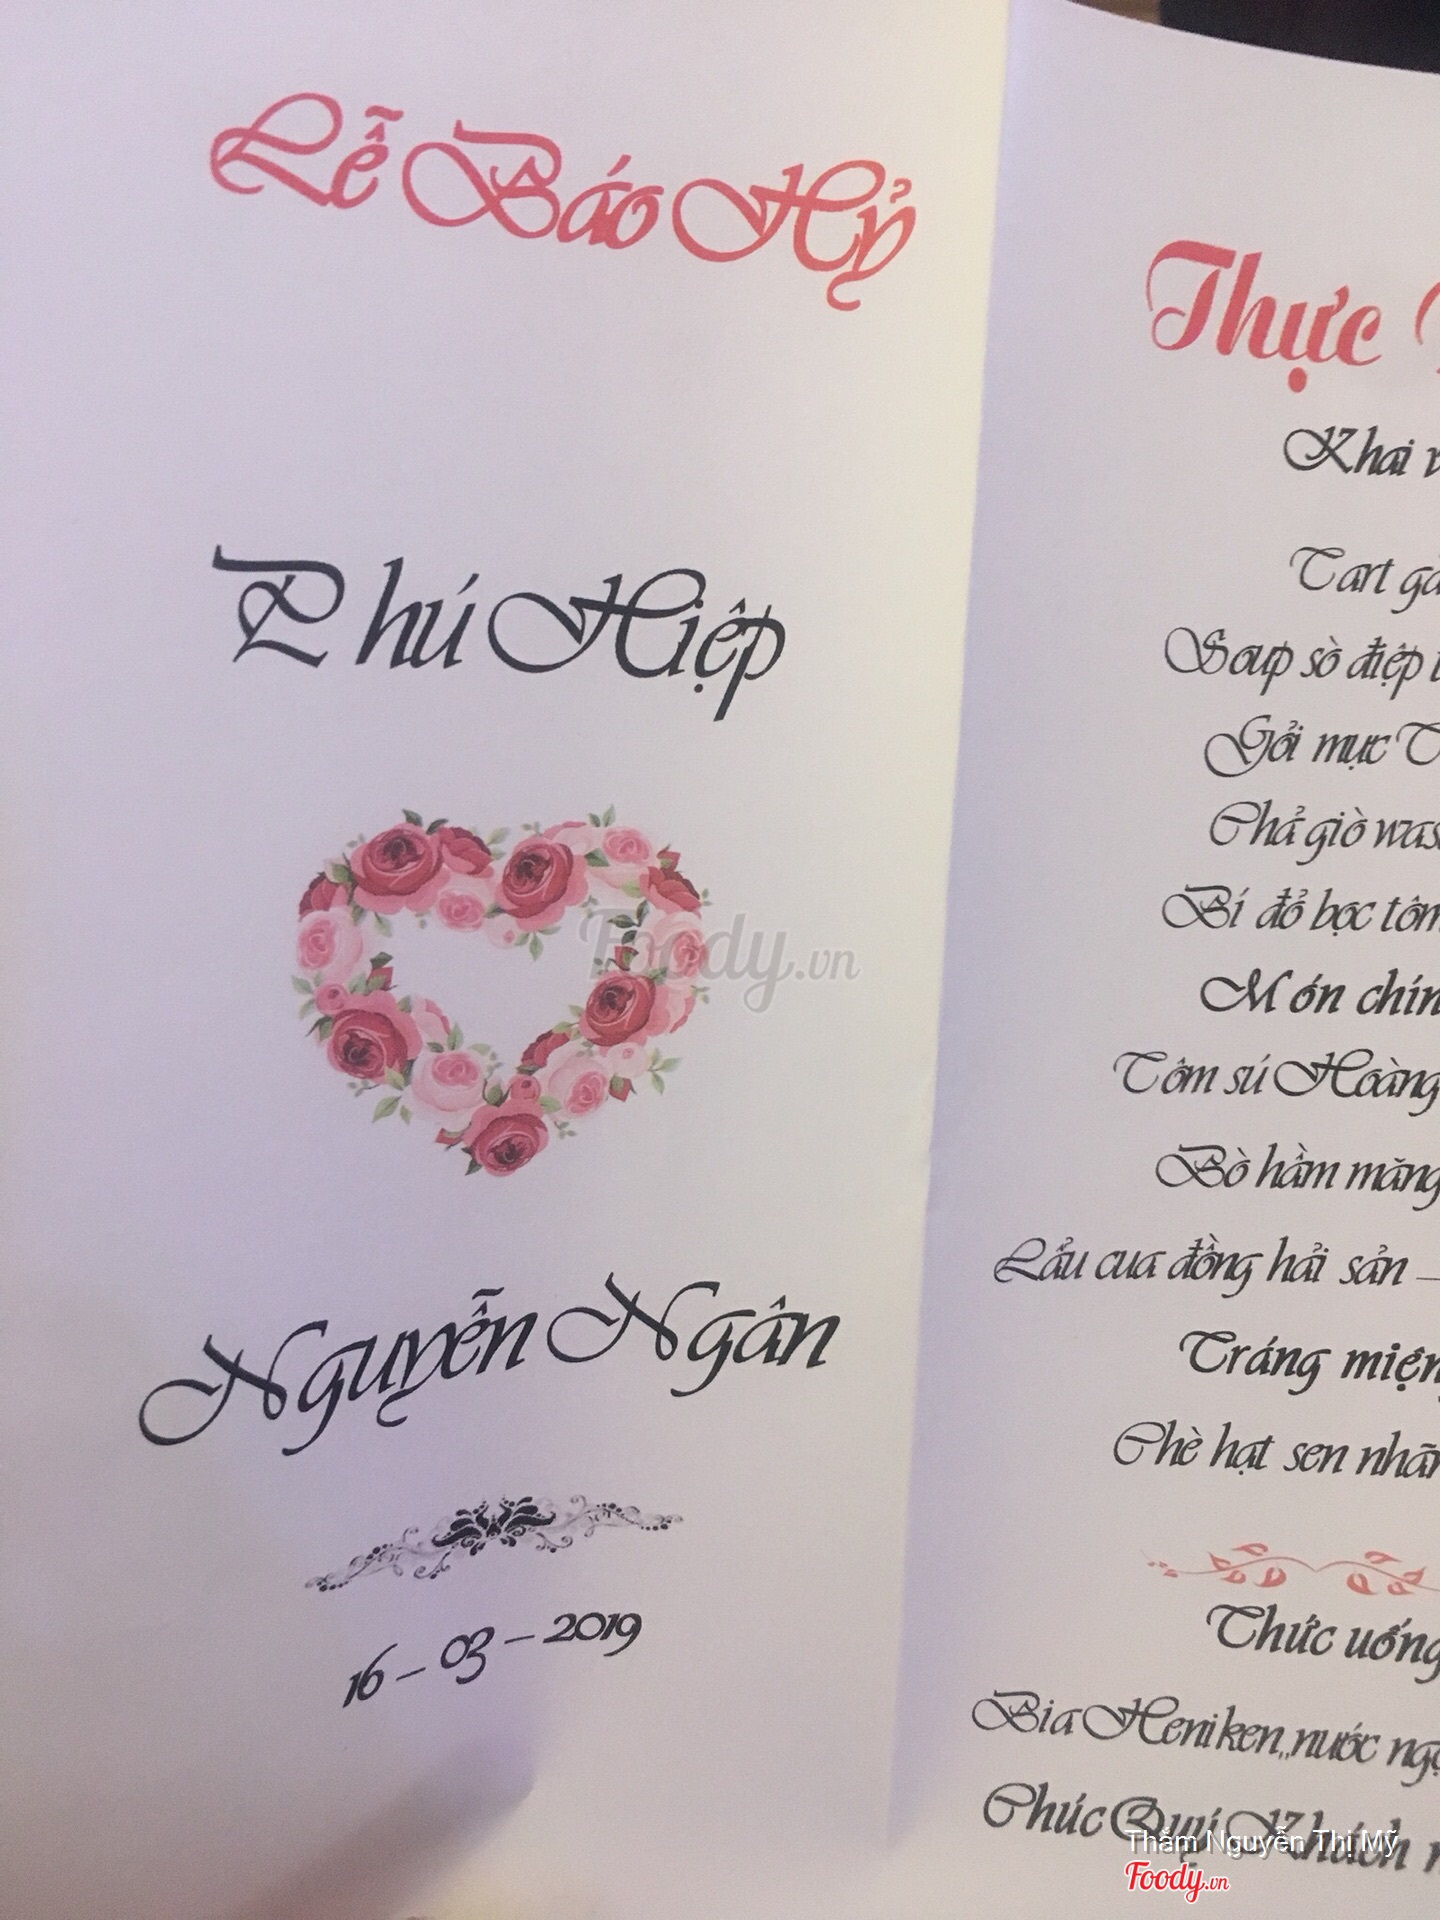 Lễ Báo Hỷ
Phú Hiệp
Nguyễn Ngân
16 - 03 - 2019
Thực
Khai
Tart
Soup sò điệp
Gỏi mực
Chả giò
Bí đỏ bọc tôm
Món
Tôm sú Hoàng
Bò hầm măng
Lẩu cua đồng hải sản –
Tráng
Chè hạt sen
Thức uống
Bia Heniken,,nước
Chúc Quý Khách
Foody.vn
Thắm Nguyễn Thị Mỹ
Foody.vn